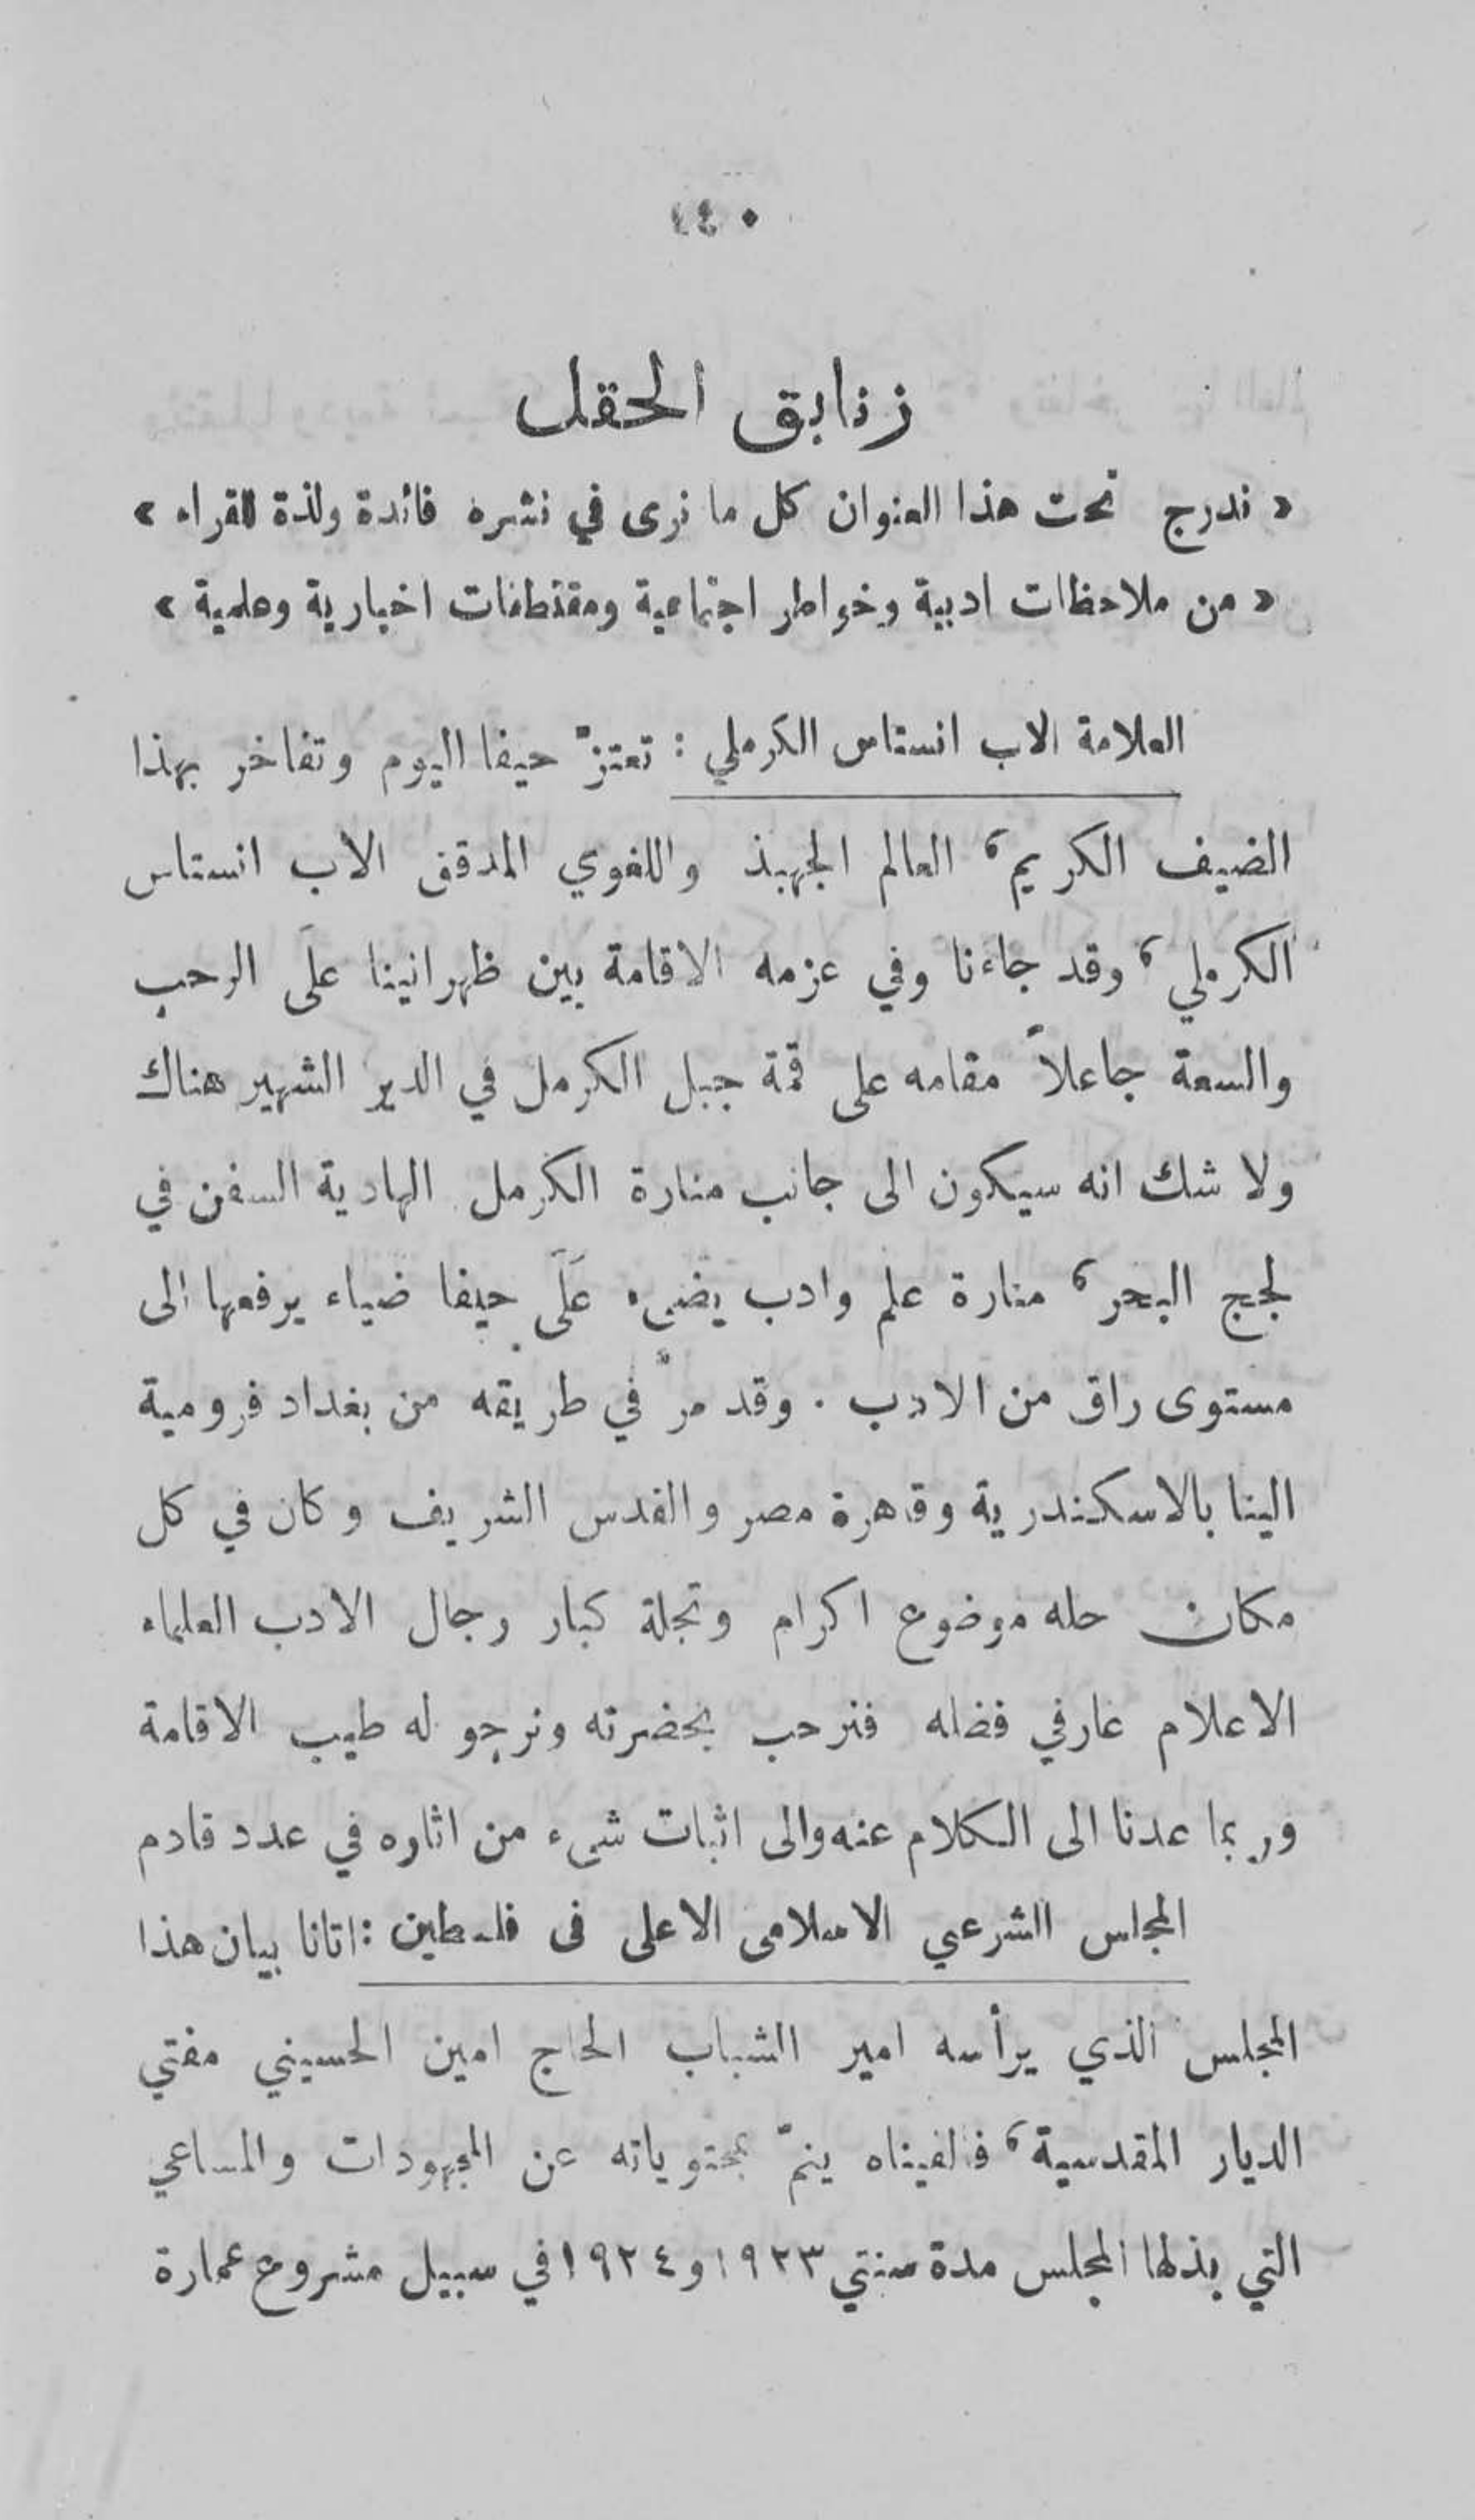 ١٤٠
زنابق الحقل
« ندرج تحت هذا العنوان كل ما نرى في نشره فائدة ولذة للقراء »
« من ملاحظات ادبية وخواطر اجتماعية ومقتطفات اخبارية وعلمية »
العلامة الاب انستاس الكرملي : تعتزّ حيفا اليوم وتفاخر بهذا
الضيف الكريم، العالم الجهبذ واللغوي المدقق الاب انستاس
الكرملي، وقد جاءنا وفي عزمه الاقامة بين ظهرانينا علَى الرحب
والسعة جاعلاً مقامه على قمة جبل الكرمل في الدير الشهير هناك
ولا شك انه سيكون الى جانب منارة الكرمل الهادية السفن في
لجج البحر، منارة علم وادب يضيء علَى حيفا ضياء يرفعها الى
مستوى راق من الادب . وقد مرّ في طريقه من بغداد فرومية
الينا بالاسكندرية وقاهرة مصر والقدس الشريف وكان في كل
مكان حله موضوع اكرام وتجلة كبار رجال الادب العلماء
الاعلام عارفي فضله فنرحب بحضرته ونرجو له طيب الاقامة
وربما عدنا الى الكلام عنه والى اثبات شيء من اثاره في عدد قادم
المجلس الشرعي الاسلامى الاعلى فى فلسطين : اتانا بيان هذا
المجلس الذي يرأسه امير الشباب الحاج امين الحسيني مفتي
الديار المقدسية، فالفيناه ينمّ بمحتوياته عن المجهودات والمساعي
التي بذلها المجلس مدة سنتي ١٩٢٣ و١٩٢٤ في سبيل مشروع عمارة